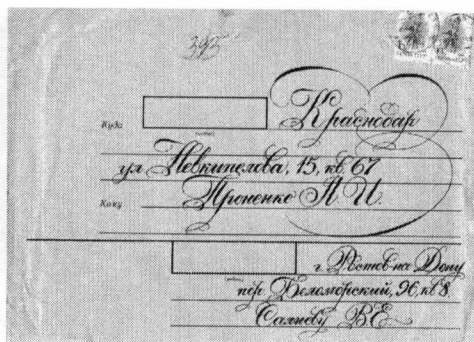 395
Куда
Краснодар
ул. Невкипелова, 15, кв. 67
Кому
Проненко Л. И.
г. Ростов на Дону
пер. Беломорский, 96, кв 8
Салиеву В Е